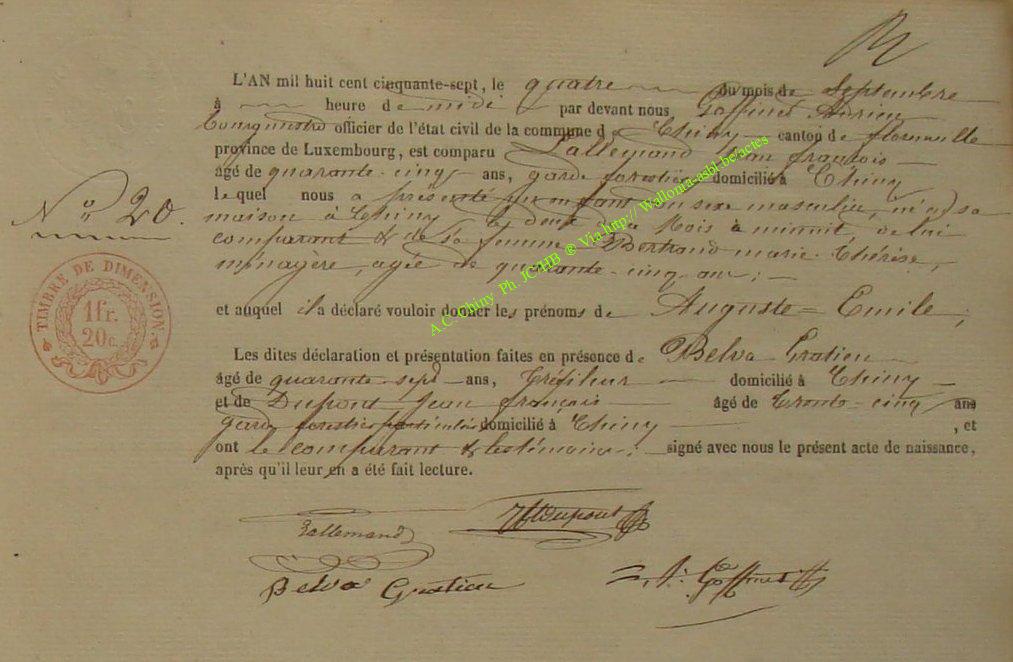 L'AN mil huit cent cinquante-sept, le quatre du mois de Septembre
à heure de midi par devant nous Goffinet Adrien
bourgmestre officier de l'état civil de la commune de Chiny canton de florenville
province de Luxembourg, est comparu Lallemand Jean françois
âgé de quarante-cinq ans, garde forestier domicilié à Chiny
lequel nous a présenté un enfant du sexe masculin, né en sa
maison à Chiny le deux du Mois à minuit, de lui
comparant & de sa femme Bertrand marie-Thérèse,
ménagère, agée de quarante-cinq ans; -
et auquel il a déclaré vouloir donner les prénoms de Auguste-Emile;
Les dites déclaration et présentation faites en présence de Belva Gratien
âgé de quarante-sept ans, Tréfileur domicilié à Chiny
et de Dupont Jean françois âgé de trente-cinq ans
garde forestier particulier domicilié à Chiny , et
ont le comparant & les témoins signé avec nous le présent acte de naissance,
après qu'il leur en a été fait lecture.
N° 20.
TIMBRE DE DIMENSION
1fr.
20c.
A.C. Chiny Ph JCHB ® Via http:// Wallonia-asbl-be/actes
Lallemand
Dupont
Belva Gratien
A. Goffinet